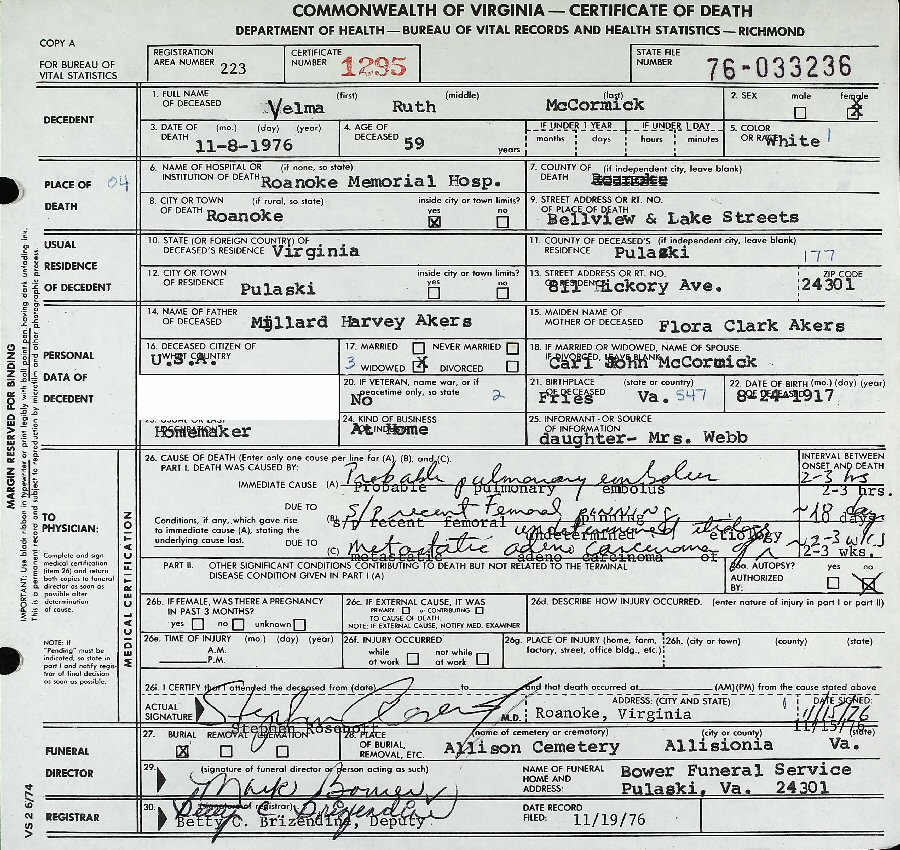 COMMONWEALTH OF VIRGINIA — CERTIFICATE OF DEATH
DEPARTMENT OF HEALTH — BUREAU OF VITAL RECORDS AND HEALTH STATISTICS — RICHMOND
COPY A
FOR BUREAU OF VITAL STATISTICS
REGISTRATION AREA NUMBER 223
CERTIFICATE NUMBER 1295
STATE FILE NUMBER 76-033236
DECEDENT
1. FULL NAME OF DECEASED (first) (middle) (last) Velma Ruth McCormick
2. SEX male female X
3. DATE OF DEATH (mo.) (day) (year) 11-8-1976
4. AGE OF DECEASED 59 years
IF UNDER 1 YEAR months days
IF UNDER 1 DAY hours minutes
5. COLOR OR RACE White 1
PLACE OF DEATH 04
6. NAME OF HOSPITAL OR INSTITUTION OF DEATH (if none, so state) Roanoke Memorial Hosp.
7. COUNTY OF DEATH (if independent city, leave blank) Roanoke
8. CITY OR TOWN OF DEATH (if rural, so state) Roanoke
inside city or town limits? yes X no
9. STREET ADDRESS OR RT. NO. OF PLACE OF DEATH Bellview & Lake Streets
USUAL RESIDENCE OF DECEDENT
10. STATE (OR FOREIGN COUNTRY) OF DECEASED'S RESIDENCE Virginia
11. COUNTY OF DECEASED'S RESIDENCE (if independent city, leave blank) Pulaski 177
12. CITY OR TOWN OF RESIDENCE Pulaski
inside city or town limits? yes no
13. STREET ADDRESS OR RT. NO. OF RESIDENCE 811 Hickory Ave.
ZIP CODE 24301
PERSONAL DATA OF DECEDENT
14. NAME OF FATHER OF DECEASED Millard Harvey Akers
15. MAIDEN NAME OF MOTHER OF DECEASED Flora Clark Akers
16. DECEASED CITIZEN OF WHAT COUNTRY U.S.A.
17. MARRIED NEVER MARRIED 3 WIDOWED X DIVORCED
18. IF MARRIED OR WIDOWED, NAME OF SPOUSE. IF DIVORCED, LEAVE BLANK Carl John McCormick
20. IF VETERAN, name war, or if peacetime only, so state No 2
21. BIRTHPLACE OF DECEASED (state or country) Fries Va. 547
22. DATE OF BIRTH OF DECEASED (mo.) (day) (year) 8-24-1917
23. USUAL OR LAST Homemaker
24. KIND OF BUSINESS OR INDUSTRY At Home
25. INFORMANT - OR SOURCE OF INFORMATION daughter- Mrs. Webb
MARGIN RESERVED FOR BINDING
IMPORTANT: Use black ribbon in typewriter or print legibly with ball point pen having dark unfading ink.
This is a permanent record and subject to reproduction by microfilm and other photographic process.
TO PHYSICIAN:
Complete and sign medical certification (item 26) and return both copies to funeral director as soon as possible after determination of cause.
NOTE: If "Pending" must be indicated, so state in part I and notify registrar of final decision as soon as possible.
MEDICAL CERTIFICATION
26. CAUSE OF DEATH (Enter only one cause per line for (A), (B), and (C).
PART I. DEATH WAS CAUSED BY:
INTERVAL BETWEEN ONSET AND DEATH
IMMEDIATE CAUSE (A) Probable pulmonary embolus 2-3 hrs
Probable pulmonary embolus 2-3 hrs.
Conditions, if any, which gave rise to immediate cause (A), stating the underlying cause last.
DUE TO (B) S/P recent Femoral pinning ~18 days
s/p recent femoral pinning 18 days
undetermined etiology
undetermined etiology
DUE TO (C) Metastatic adeno carcinoma of ~2-3 wks
metastatic adeno carcinoma of 2-3 wks.
PART II. OTHER SIGNIFICANT CONDITIONS CONTRIBUTING TO DEATH BUT NOT RELATED TO THE TERMINAL DISEASE CONDITION GIVEN IN PART I (A)
26a. AUTOPSY? AUTHORIZED BY: yes no X
26b. IF FEMALE, WAS THERE A PREGNANCY IN PAST 3 MONTHS? yes no unknown
26c. IF EXTERNAL CAUSE, IT WAS PRIMARY or CONTRIBUTING TO CAUSE OF DEATH
NOTE: IF EXTERNAL CAUSE, NOTIFY MED. EXAMINER
26d. DESCRIBE HOW INJURY OCCURRED. (enter nature of injury in part I or part II)
26e. TIME OF INJURY (mo.) (day) (year) A.M. P.M.
26f. INJURY OCCURRED while at work not while at work
26g. PLACE OF INJURY (home, farm, factory, street, office bldg., etc.)
26h. (city or town) (county) (state)
26i. I CERTIFY that I attended the deceased from (date) to and that death occurred at (AM)(PM) from the cause stated above
ACTUAL SIGNATURE Stephen Rosenoff M.D.
Stephen Rosenoff
ADDRESS: (CITY AND STATE) Roanoke, Virginia
DATE SIGNED: 11/15/76
11/15/76
FUNERAL DIRECTOR
27. BURIAL X REMOVAL CREMATION
28. PLACE OF BURIAL, REMOVAL, ETC. (name of cemetery or crematory) (city or county) (state) Allison Cemetery Allisionia Va.
29. (signature of funeral director or person acting as such) Mark Bower
NAME OF FUNERAL HOME AND ADDRESS: Bower Funeral Service
Pulaski, Va. 24301
REGISTRAR
30. (signature of registrar) Betty C. Brizendine
Betty C. Brizendine, Deputy
DATE RECORD FILED: 11/19/76
VS 2 6/74